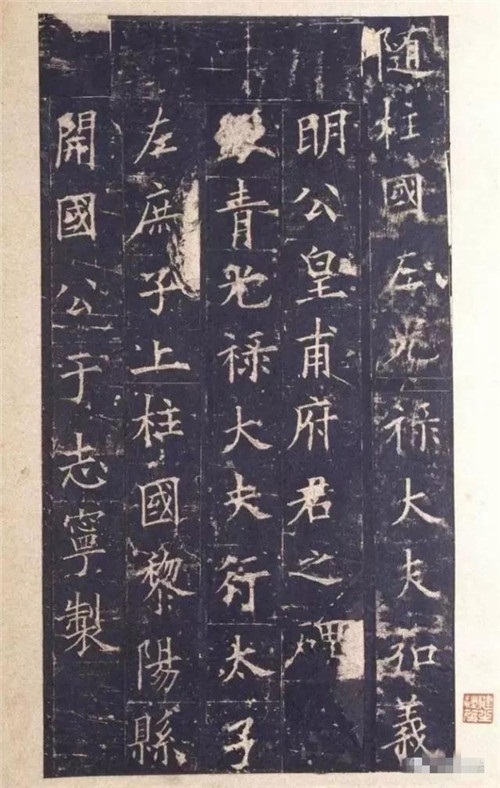 随柱國左光祿大夫弘義
明公皇甫府君之碑
銀青光祿大夫行太子
左庶子上柱國黎陽縣
開國公于志寧製